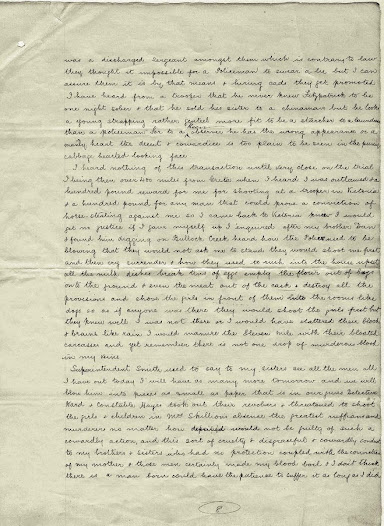 was a discharged sergeant amongst them which is contrary to law
they thought it impossible for a Policeman to swear a lie but I can
assure them it is by that means & hiring cads they get promoted
I have heard from a trooper that he never knew Fitzpatrick to be
one night sober & that he sold his sister to a chinaman but he looks
a young strapping rather genteel more fit to be a starcher to a laundress
than a policeman for to a keen observer he has the wrong appearance or a
manly heart the deceit & cowardice is too plain to be seen in the puny
cabbage hearted looking face
I heard nothing of this transaction until very close on the trial
I being then over 400 miles from Greta when I heard I was outlawed & a
hundred pound reward for me for shooting at a trooper in Victoria
& a hundred pound for any man that could prove a conviction of
horse-stealing against me so I came back to Victoria knew I would
get no justice if I gave myself up I enquired after my brother Dan
& found him digging on Bullock Creek heard how the Police used to be
blowing that they would not ask me to stand they would shoot me first
and then cry surrender & how they used to rush into the house upset
all the milk dishes break tins of eggs empty the flour out of bags
onto the ground & even the meat out of the cask & destroy all the
provisions and shove the girls in front of them into the rooms like
dogs so as if anyone was there they would shoot the girls first but
they knew well I was not there or I would have scattered their blood
& brains like rain I would manure the Eleven mile with their bloated
carcasses and yet remember there is not one drop of murderous blood
in my veins
Superintendent Smith used to say to my sisters see all the men all
I have out today I will have as many more tomorrow and we will
blow him into pieces as small as paper that is in our guns Detective
Ward & constable Hayes took out their revolvers & threatened to shoot
the girls & children in Mrs Skillions absence the greatest ruffians and
murderers no matter how would not be guilty of such a
cowardly action, and this sort of cruelty & disgraceful & cowardly conduct
to my brothers & sisters who had no protection coupled with the conviction
of my mother & those men certainly made my blood boil & I dont think
there is a man born could have the patience to suffer it as long as I did
8